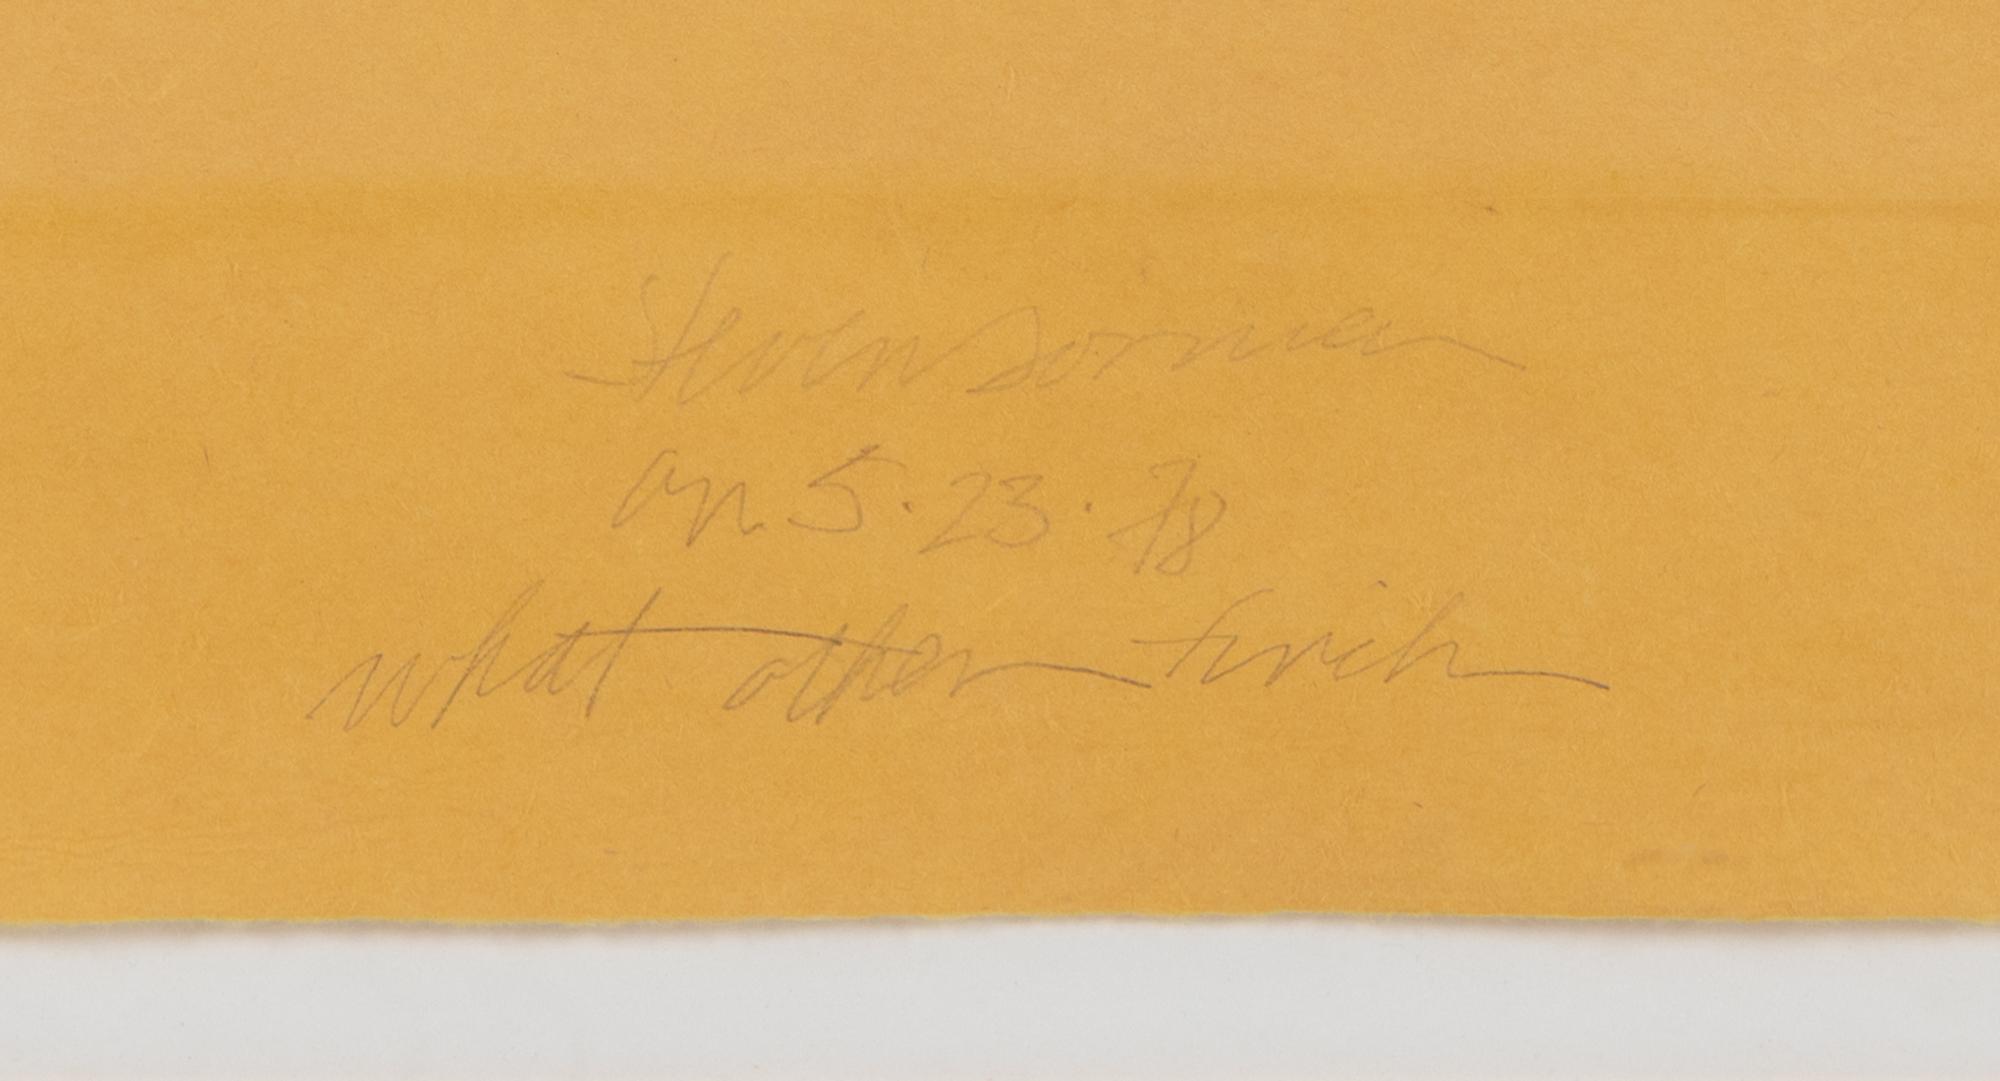 Steven Sorman
on 5·23·78
what other